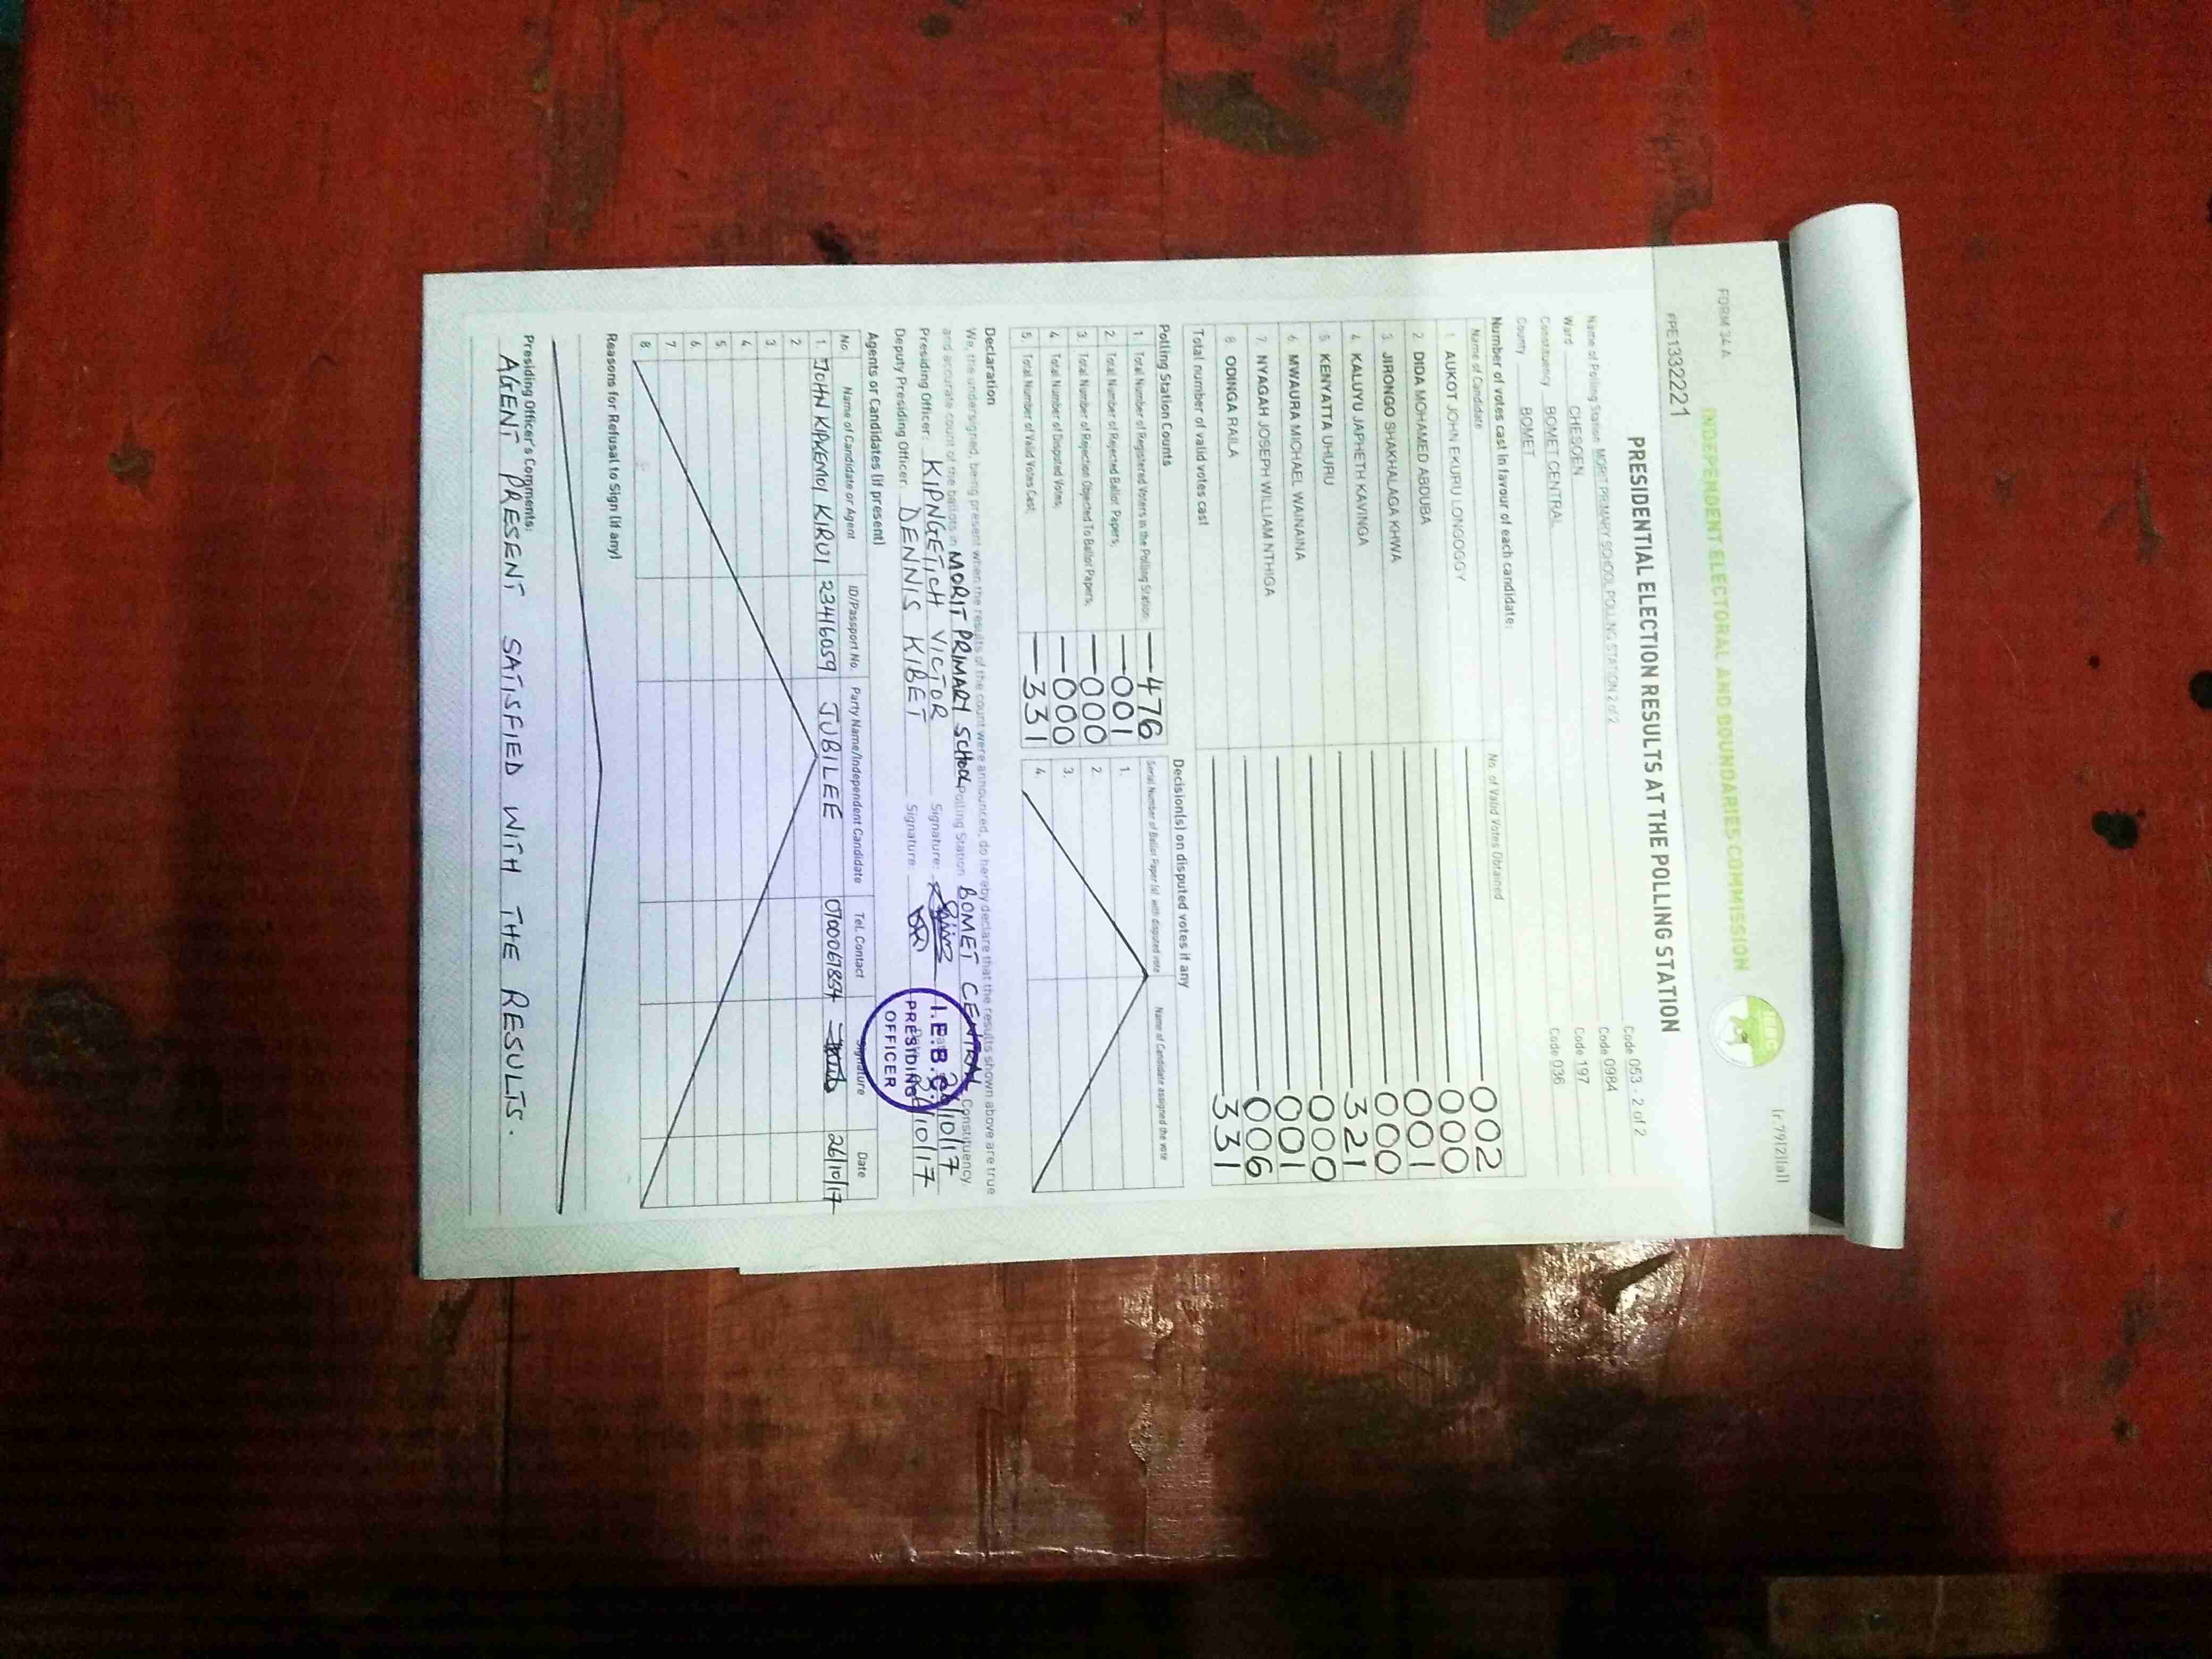 FORM 34 A
(r.79(2)(a))
INDEPENDENT ELECTORAL AND BOUNDARIES COMMISSION
IEBC
PPE1332221
PRESIDENTIAL ELECTION RESULTS AT THE POLLING STATION
Name of Polling Station MORIT PRIMARY SCHOOL POLLING STATION 2 of 2 Code 053 - 2 of 2
Ward CHESOEN Code 0984
Constituency BOMET CENTRAL Code 197
County BOMET Code 036
Number of votes cast in favour of each candidate:
Name of Candidate No. of Valid Votes Obtained
1 AUKOT JOHN EKURU LONGOGGY 002
2 DIDA MOHAMED ABDUBA 000
3 JIRONGO SHAKHALAGA KHWA 001
4 KALUYU JAPHETH KAVINGA 000
5 KENYATTA UHURU 321
6 MWAURA MICHAEL WAINAINA 000
7. NYAGAH JOSEPH WILLIAM NTHIGA 001
8 ODINGA RAILA 006
Total number of valid votes cast 331
Polling Station Counts
1. Total Number of Registered Voters in the Polling Station: 476
2. Total Number of Rejected Ballot Papers; 001
3. Total Number of Rejection Objected To Ballot Papers; 000
4 Total Number of Disputed Votes; 000
5. Total Number of Valid Votes Cast; 331
Decision(s) on disputed votes if any
Serial Number of Ballot Paper (s) with disputed vote Name of Candidate assigned the vote
1.
2
3.
4.
Declaration
We, the undersigned, being present when the results of the count were announced, do hereby declare that the results shown above are true
and accurate count of the ballots in MORIT PRIMARY SCHOOL Polling Station BOMET CENTRAL Constituency.
Presiding Officer: KIPNGETICH VICTOR Signature: /10/17
Deputy Presiding Officer: DENNIS KIBET Signature: /10/17
I.E.B.C.
PRESIDING
OFFICER
Agents or Candidates (if present)
No. Name of Candidate or Agent ID/Passport No. Party Name/Independent Candidate Tel. Contact Signature Date
1. JOHN KIPKEMOI KIRUI 23446059 JUBILEE 0700067854 26/10/17
2
3
4
5.
6.
7
8
Reasons for Refusal to Sign (if any)
Presiding Officer's Comments:
AGENT PRESENT SATISFIED WITH THE RESULTS.